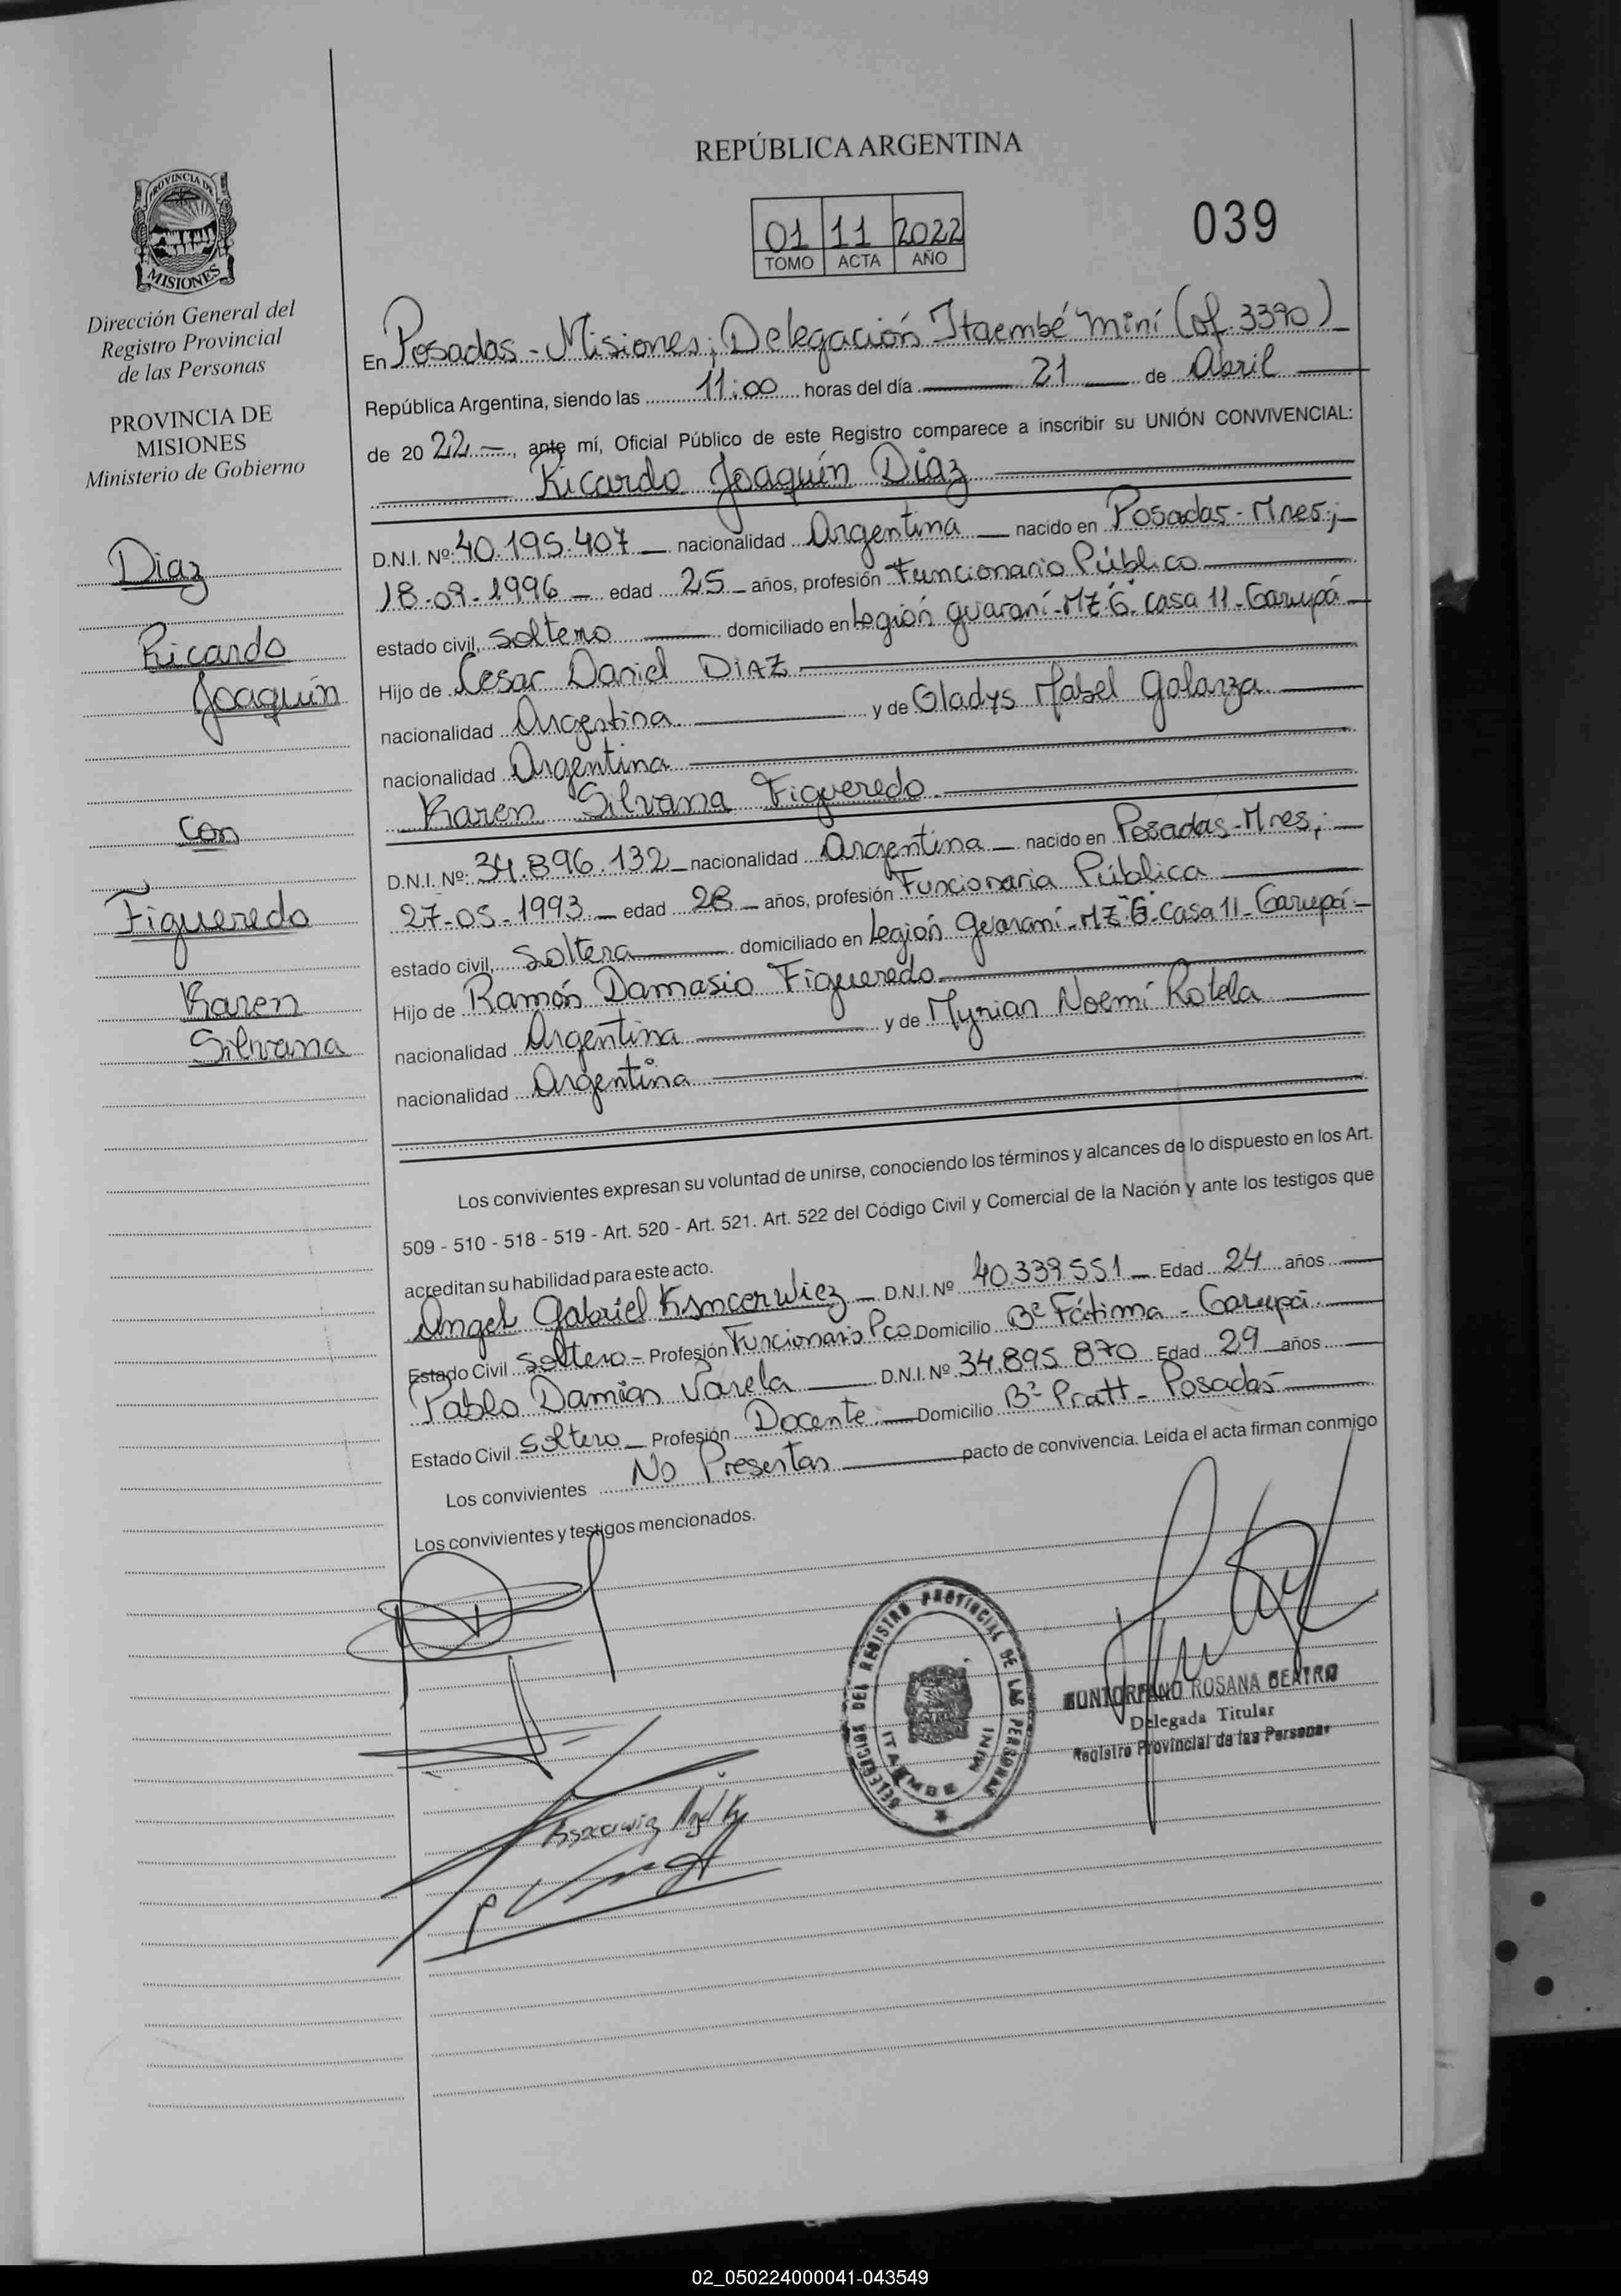 REPÚBLICA ARGENTINA
PROVINCIA DE
MISIONES
01 11 2022
TOMO ACTA AÑO
039
Dirección General del
Registro Provincial
de las Personas
PROVINCIA DE
MISIONES
Ministerio de Gobierno
Diaz
Ricardo
Joaquín
con
Figueredo
Karen
Silvana
En Posadas - Misiones; Delegación Itaembé Miní (of. 3390)
República Argentina, siendo las 11:00 horas del día 21 de Abril
de 20 22, ante mí, Oficial Público de este Registro comparece a inscribir su UNIÓN CONVIVENCIAL:
Ricardo Joaquín Díaz
D.N.I. Nº: 40.195.407 nacionalidad Argentina nacido en Posadas - Mnes;
18-09-1996 edad 25 años, profesión Funcionario Público
estado civil, Soltero domiciliado en Legión guaraní - MZ "G" casa 11 - Garupá
Hijo de Cesar Daniel DIAZ
nacionalidad Argentina y de Gladys Mabel Galarza
nacionalidad Argentina
Karen Silvana Figueredo
D.N.I. Nº: 34.896.132 nacionalidad Argentina nacido en Posadas - Mnes;
27-05-1993 edad 28 años, profesión Funcionaria Pública
estado civil, Soltera domiciliado en Legión guaraní - MZ "G" casa 11 - Garupá
Hijo de Ramón Damasio Figueredo
nacionalidad Argentina y de Myrian Noemí Rotela
nacionalidad Argentina
Los convivientes expresan su voluntad de unirse, conociendo los términos y alcances de lo dispuesto en los Art.
509 - 510 - 518 - 519 - Art. 520 - Art. 521. Art. 522 del Código Civil y Comercial de la Nación y ante los testigos que
acreditan su habilidad para este acto.
Angel Gabriel D.N.I. Nº 40.339.551 Edad 24 años
Estado Civil Soltero Profesión Funcionario Pco Domicilio Bº Fátima - Garupá
Pablo Damián Varela D.N.I. Nº 34.895.870 Edad 29 años
Estado Civil Soltero Profesión Docente Domicilio Bº Pratt - Posadas
Los convivientes No Presentan pacto de convivencia. Leída el acta firman conmigo
Los convivientes y testigos mencionados.
DELEGACION DEL REGISTRO PROVINCIAL DE LAS PERSONAS
ITAEMBE MINI
ROSANA BEATRO
Delegada Titular
Registro Provincial de las Personas
02_050224000041-043549